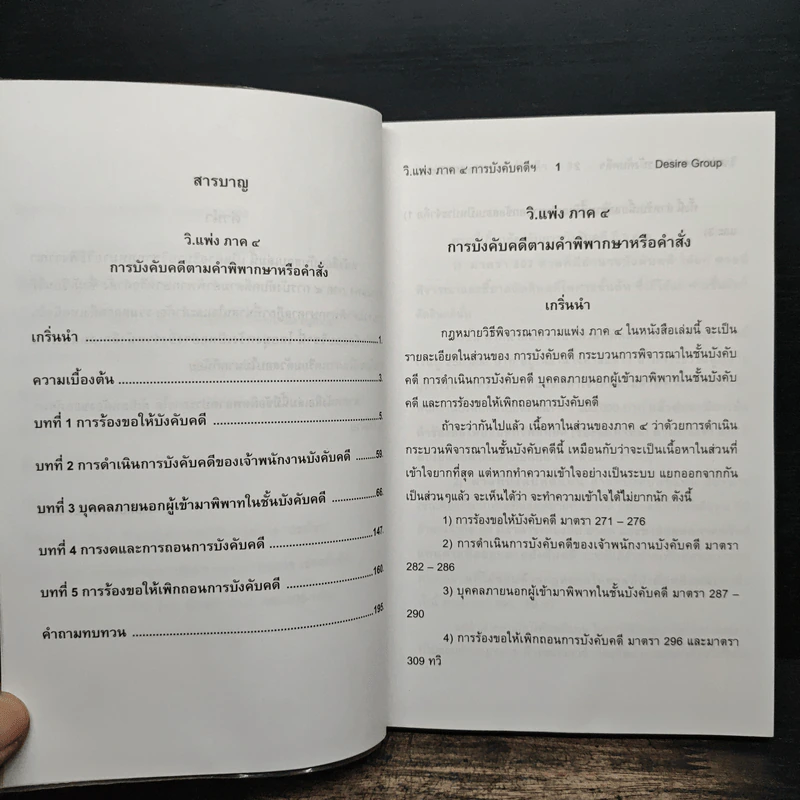 สารบาญ
วิ.แพ่ง ภาค ๔
การบังคับคดีตามคำพิพากษาหรือคำสั่ง
เกริ่นนำ ........................................................................ 1
ความเบื้องต้น ................................................................ 3
บทที่ 1 การร้องขอให้บังคับคดี ........................................... 5
บทที่ 2 การดำเนินการบังคับคดีของเจ้าพนักงานบังคับคดี ....... 59
บทที่ 3 บุคคลภายนอกผู้เข้ามาพิพาทในชั้นบังคับคดี ............. 66
บทที่ 4 การงดและการถอนการบังคับคดี .............................. 147
บทที่ 5 การร้องขอให้เพิกถอนการบังคับคดี .......................... 160
คำถามทบทวน ............................................................... 195
วิ.แพ่ง ภาค ๔ การบังคับคดีฯ 1 Desire Group
วิ.แพ่ง ภาค ๔
การบังคับคดีตามคำพิพากษาหรือคำสั่ง
เกริ่นนำ
กฎหมายวิธีพิจารณาความแพ่ง ภาค ๔ ในหนังสือเล่มนี้ จะเป็น
รายละเอียดในส่วนของ การบังคับคดี กระบวนการพิจารณาในชั้นบังคับ
คดี การดำเนินการบังคับคดี บุคคลภายนอกผู้เข้ามาพิพาทในชั้นบังคับ
คดี และการร้องขอให้เพิกถอนการบังคับคดี
ถ้าจะว่ากันไปแล้ว เนื้อหาในส่วนของภาค ๔ ว่าด้วยการดำเนิน
กระบวนพิจารณาในชั้นบังคับคดีนี้ เหมือนกับว่าจะเป็นเนื้อหาในส่วนที่
เข้าใจยากที่สุด แต่หากทำความเข้าใจอย่างเป็นระบบ แยกออกจากกัน
เป็นส่วนๆแล้ว จะเห็นได้ว่า จะทำความเข้าใจได้ไม่ยากนัก ดังนี้
1) การร้องขอให้บังคับคดี มาตรา 271 – 276
2) การดำเนินการบังคับคดีของเจ้าพนักงานบังคับคดี มาตรา
282 – 286
3) บุคคลภายนอกผู้เข้ามาพิพาทในชั้นบังคับคดี มาตรา 287 –
290
4) การร้องขอให้เพิกถอนการบังคับคดี มาตรา 296 และมาตรา
309 ทวิ